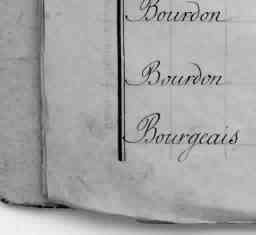 Bourdon
Bourdon
Bourgeais